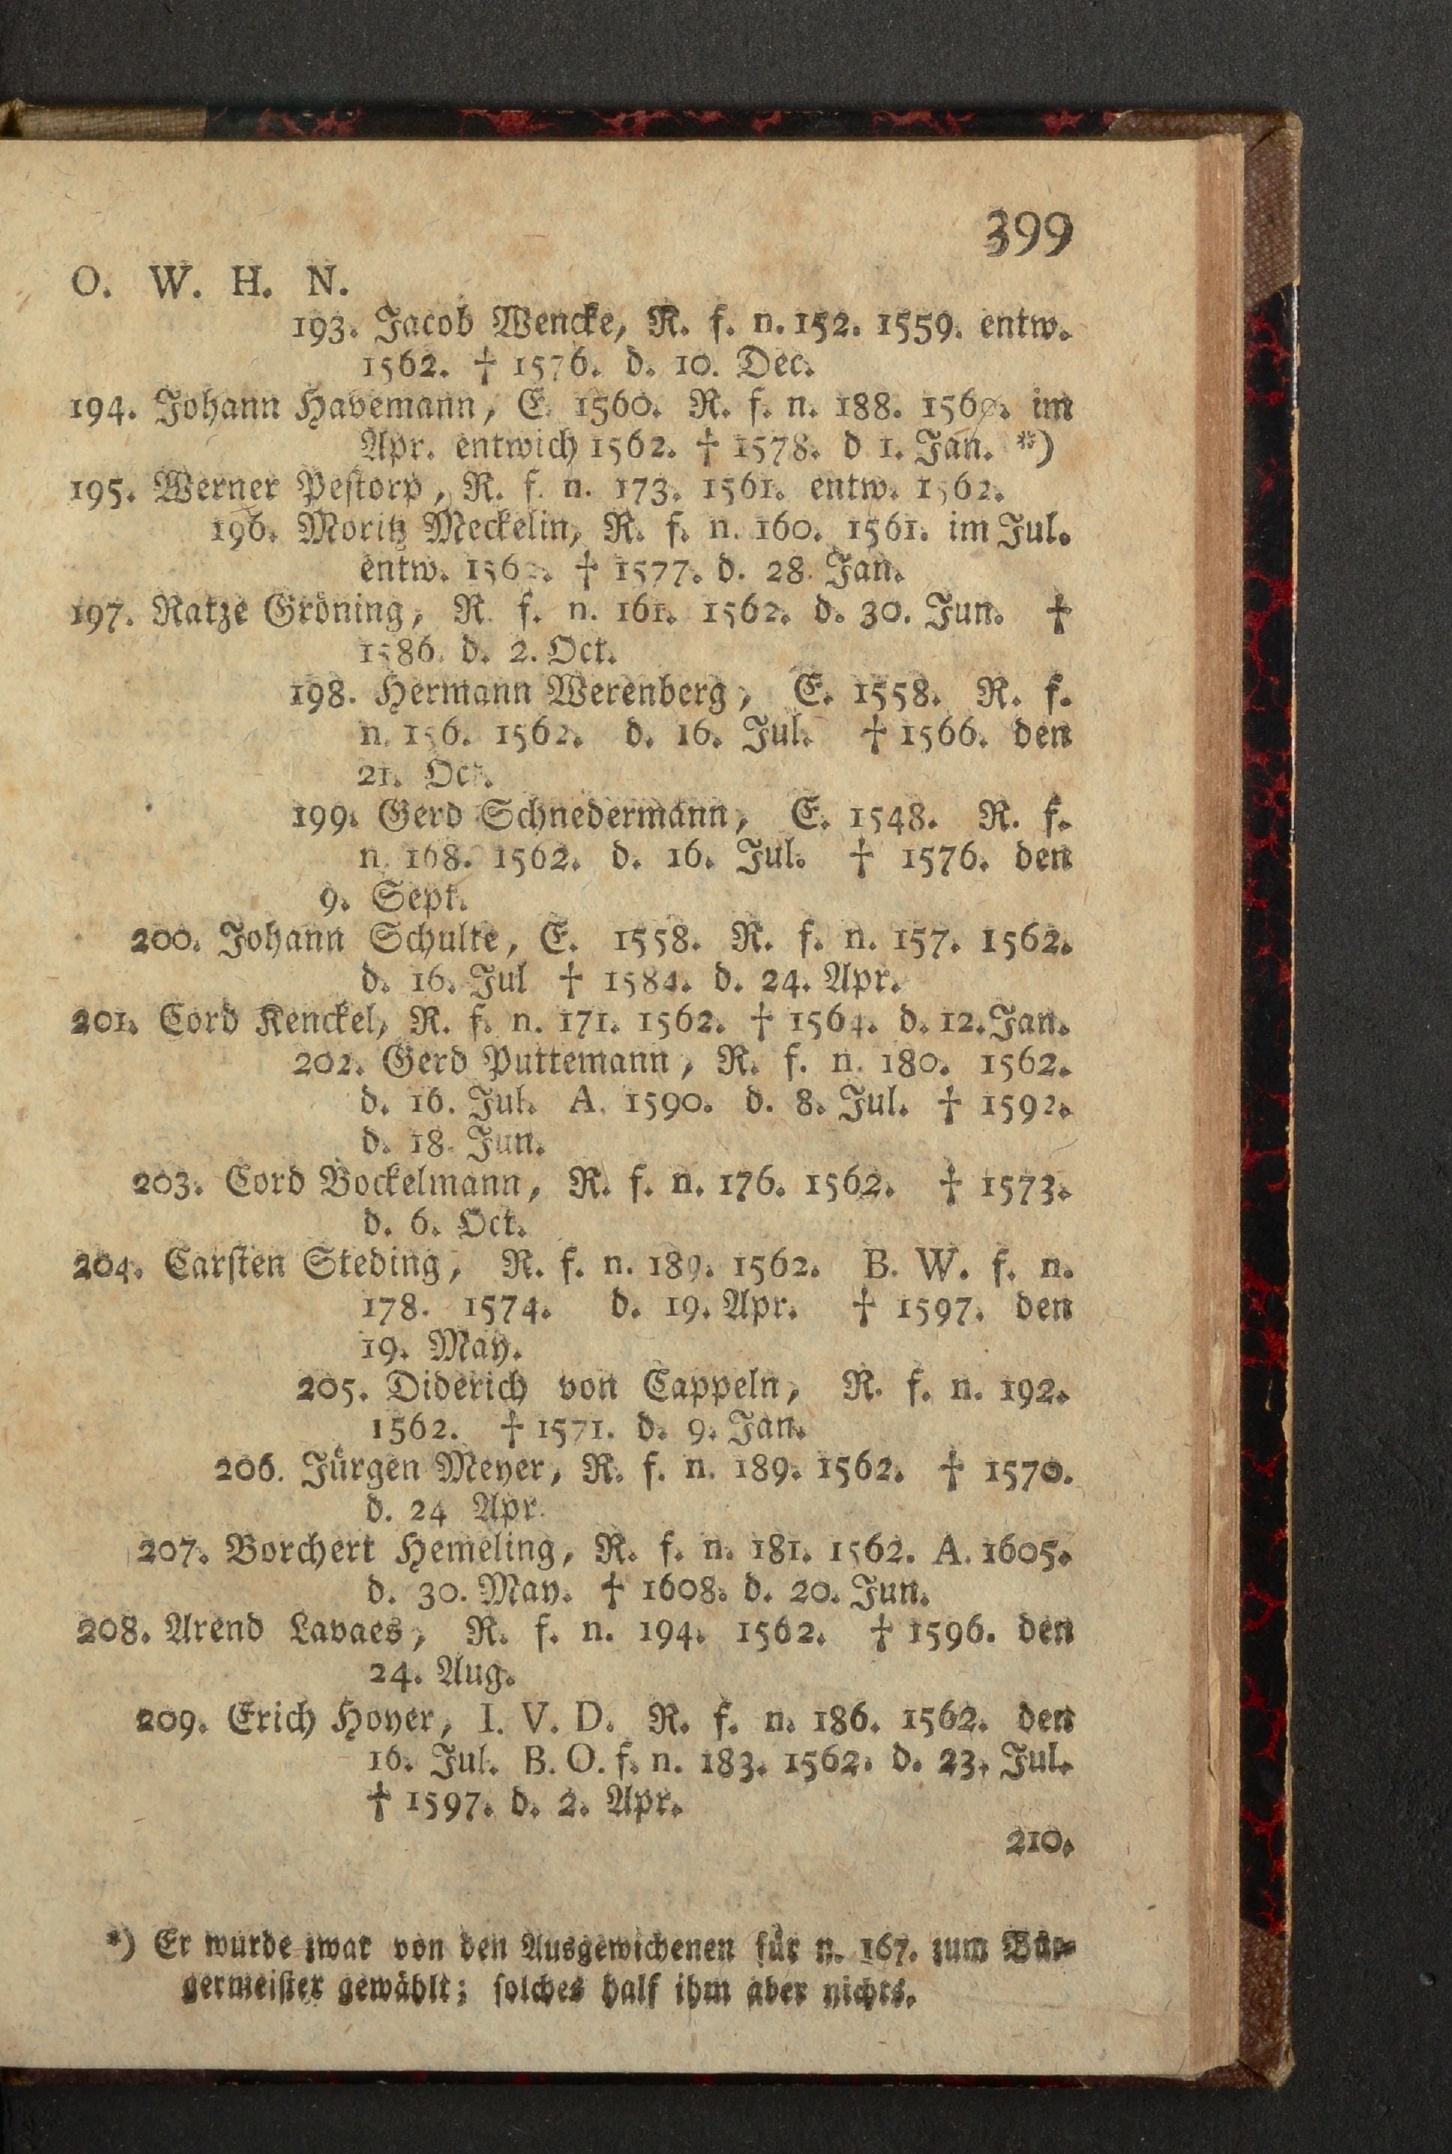 399
O. W. H. N.
193. Jacob Wencke, R. f. n. 152. 1559. entw.
1562. † 1576. d. 10. Dec.
194. Johann Havemann, E. 1560. R. f. n. 188. 1560. im
Apr. entwich 1562. † 1578. d 1. Jan. *)
195. Werner Pestorp, R. f. n. 173. 1561. entw. 1562.
196. Moritz Meckelin, R. f. n. 160. 1561. im Jul.
entw. 1562. † 1577. d. 28. Jan.
197. Ratze Gröning, R. f. n. 161. 1562. d. 30. Jun. †
1586. d. 2. Oct.
198. Hermann Werenberg, E. 1558. R. f.
n. 156. 1562. d. 16. Jul. † 1566. den
21. Oct.
199. Gerd Schnedermann, E. 1548. R. f.
n. 168. 1562. d. 16. Jul. † 1576. den
9. Sept.
200. Johann Schulte, E. 1558. R. f. n. 157. 1562.
d. 16. Jul † 1584. d. 24. Apr.
201. Cord Kenckel, R. f. n. 171. 1562. † 1564. d. 12. Jan.
202. Gerd Puttemann, R. f. n. 180. 1562.
d. 16. Jul. A. 1590. d. 8. Jul. † 1592.
d. 18. Jun.
203. Cord Bockelmann, R. f. n. 176. 1562. † 1573.
d. 6. Oct.
204. Carsten Steding, R. f. n. 189. 1562. B. W. f. n.
178. 1574. d. 19. Apr. † 1597. den
19. May.
205. Diderich von Cappeln, R. f. n. 192.
1562. † 1571. d. 9. Jan.
206. Jürgen Meyer, R. f. n. 189. 1562. † 1570.
d. 24 Apr.
207. Borchert Hemeling, R. f. n. 181. 1562. A. 1605.
d. 30. May. † 1608. d. 20. Jun.
208. Arend Lavaes, R. f. n. 194. 1562. † 1596. den
24. Aug.
209. Erich Hoyer, I. V. D. R. f. n. 186. 1562. den
16. Jul. B. O. f. n. 183. 1562. d. 23. Jul.
† 1597. d. 2. Apr.
210.
*) Er wurde zwar von den Ausgewichenen für n. 167. zum Bür-
germeister gewählt; solches half ihm aber nichts.